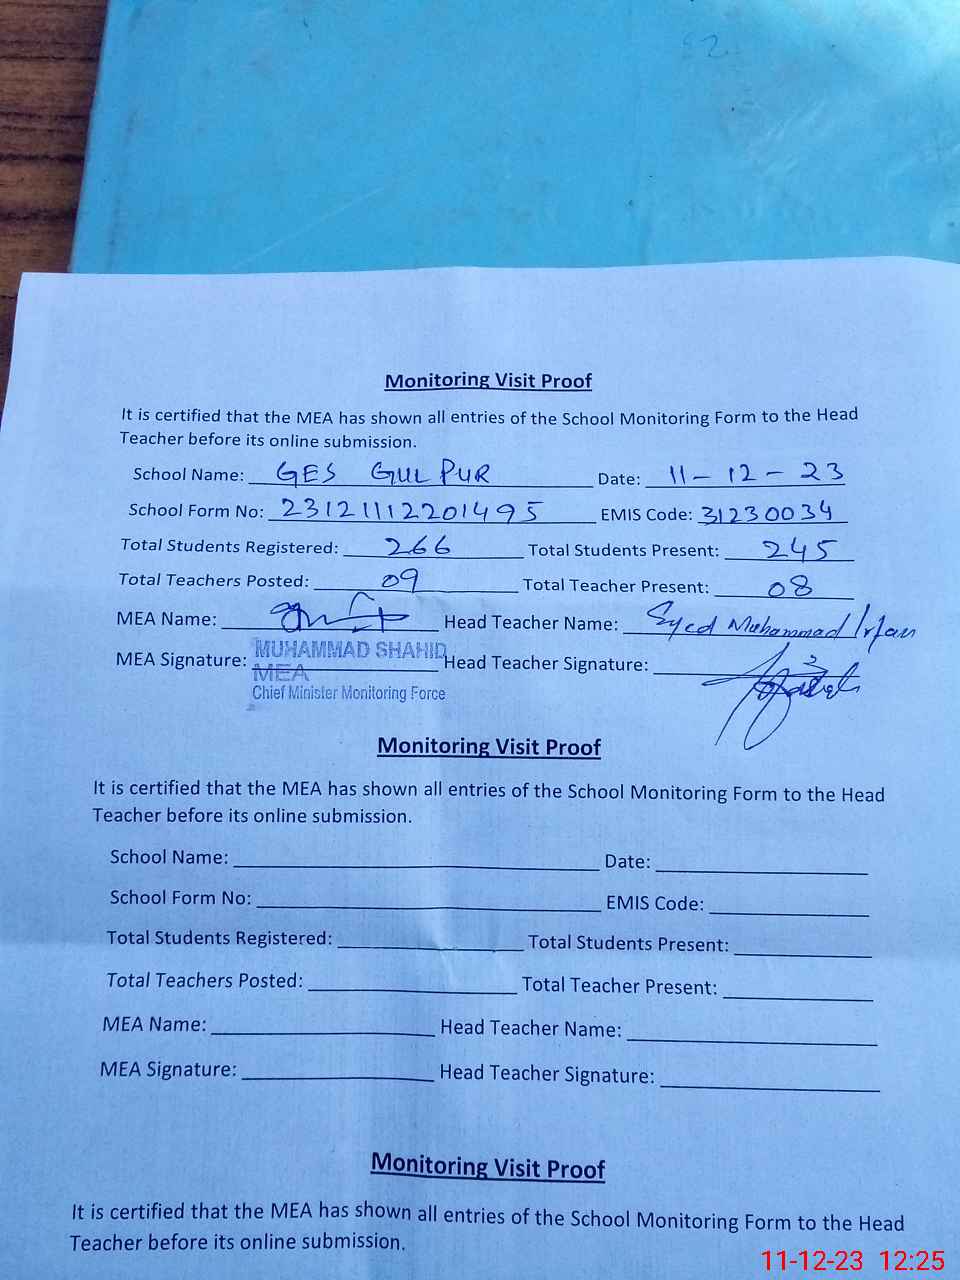 Monitoring Visit Proof
It is certified that the MEA has shown all entries of the School Monitoring Form to the Head
Teacher before its online submission.
School Name: GES GULPUR Date: 11-12-23
School Form No: 23121112201495 EMIS Code: 31230034
Total Students Registered: 266 Total Students Present: 245
Total Teachers Posted: 09 Total Teacher Present: 08
MEA Name: Head Teacher Name: Syed Muhammad Irfan
MUHAMMAD SHAHID
MEA Signature: Head Teacher Signature:
MEA
Chief Minister Monitoring Force
Monitoring Visit Proof
It is certified that the MEA has shown all entries of the School Monitoring Form to the Head
Teacher before its online submission.
School Name: Date:
School Form No: EMIS Code:
Total Students Registered: Total Students Present:
Total Teachers Posted: Total Teacher Present:
MEA Name: Head Teacher Name:
MEA Signature: Head Teacher Signature:
Monitoring Visit Proof
It is certified that the MEA has shown all entries of the School Monitoring Form to the Head
Teacher before its online submission.
11-12-23 12:25